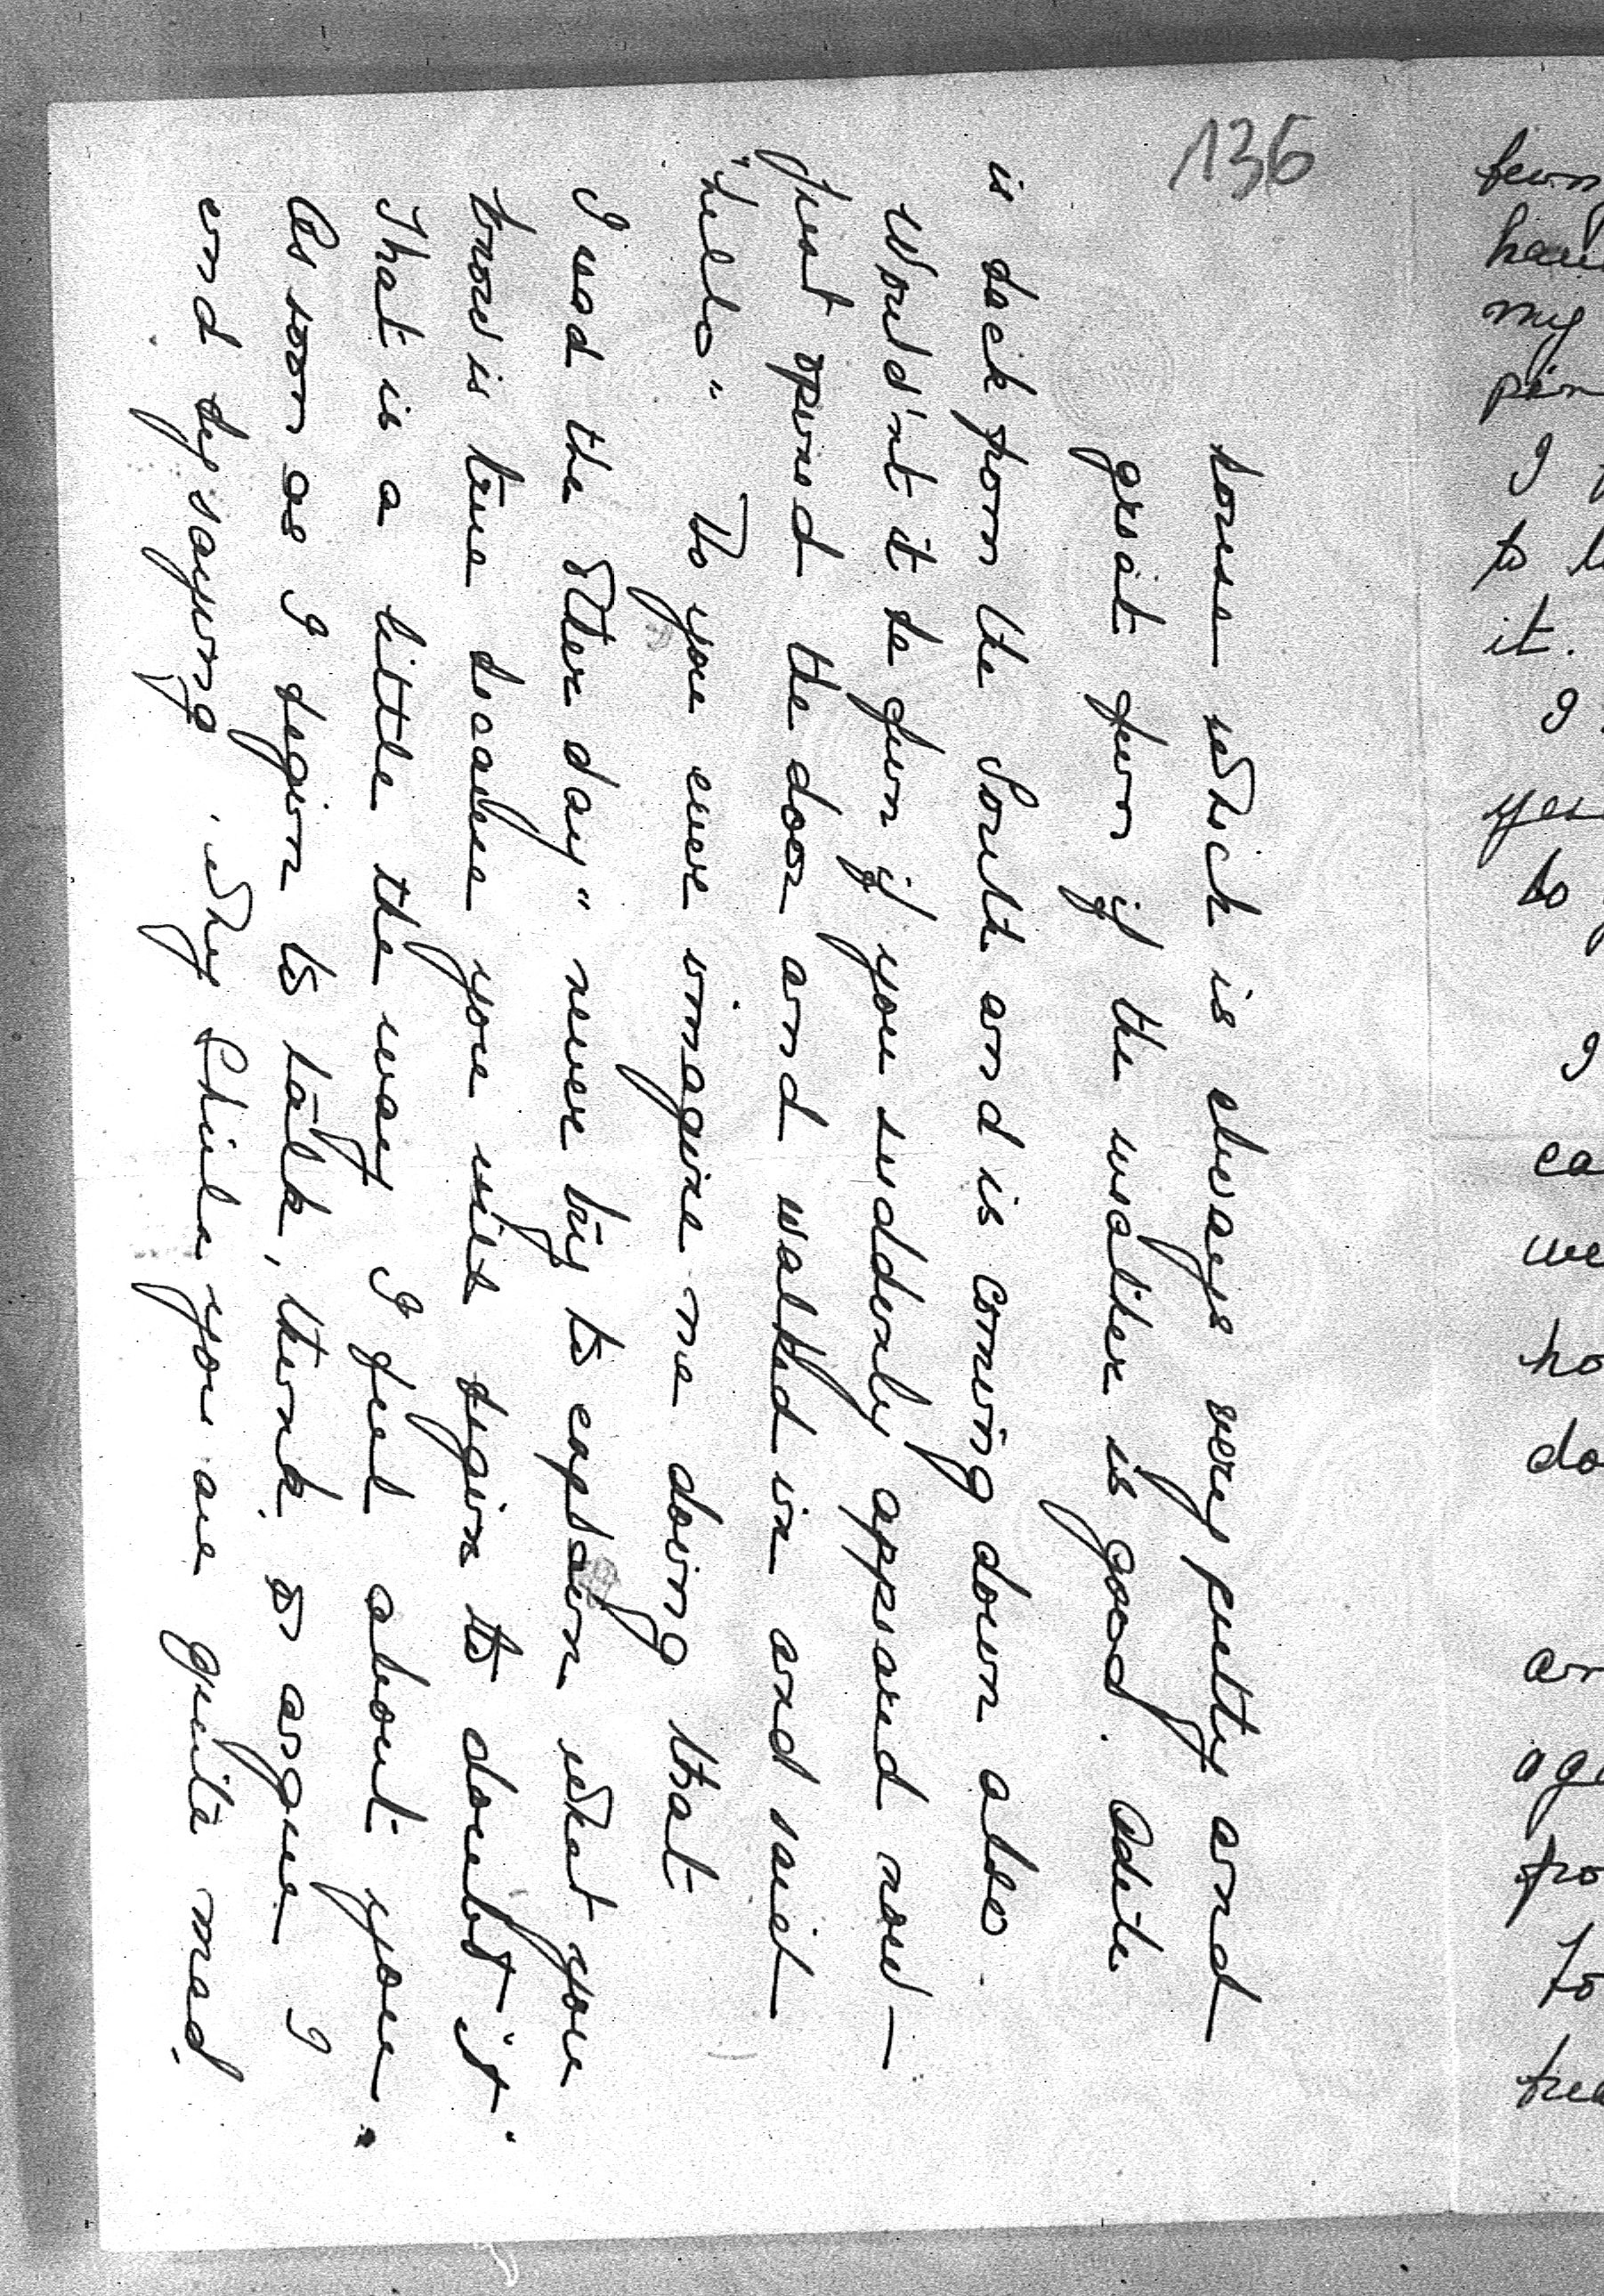 136
house which is always very pretty and
great fun if the weather is good. Odete
is back from the South and is coming down also.
Would'nt it be fun if you suddenly appeared now –
Just opened the door and walked in and said
"hello" Do you ever imagine me doing that
I read the other day "never try to explain what you
know is true because you will begin to doubt it".
That is a little the way I feel about you.
As soon as I begin to talk, think or argue I
end by saying, "Why Sheila you are quite mad.
fun
have
my
I
to
it.
I
yes
to
I
ca
we
ho
do
an
aga
fro
to